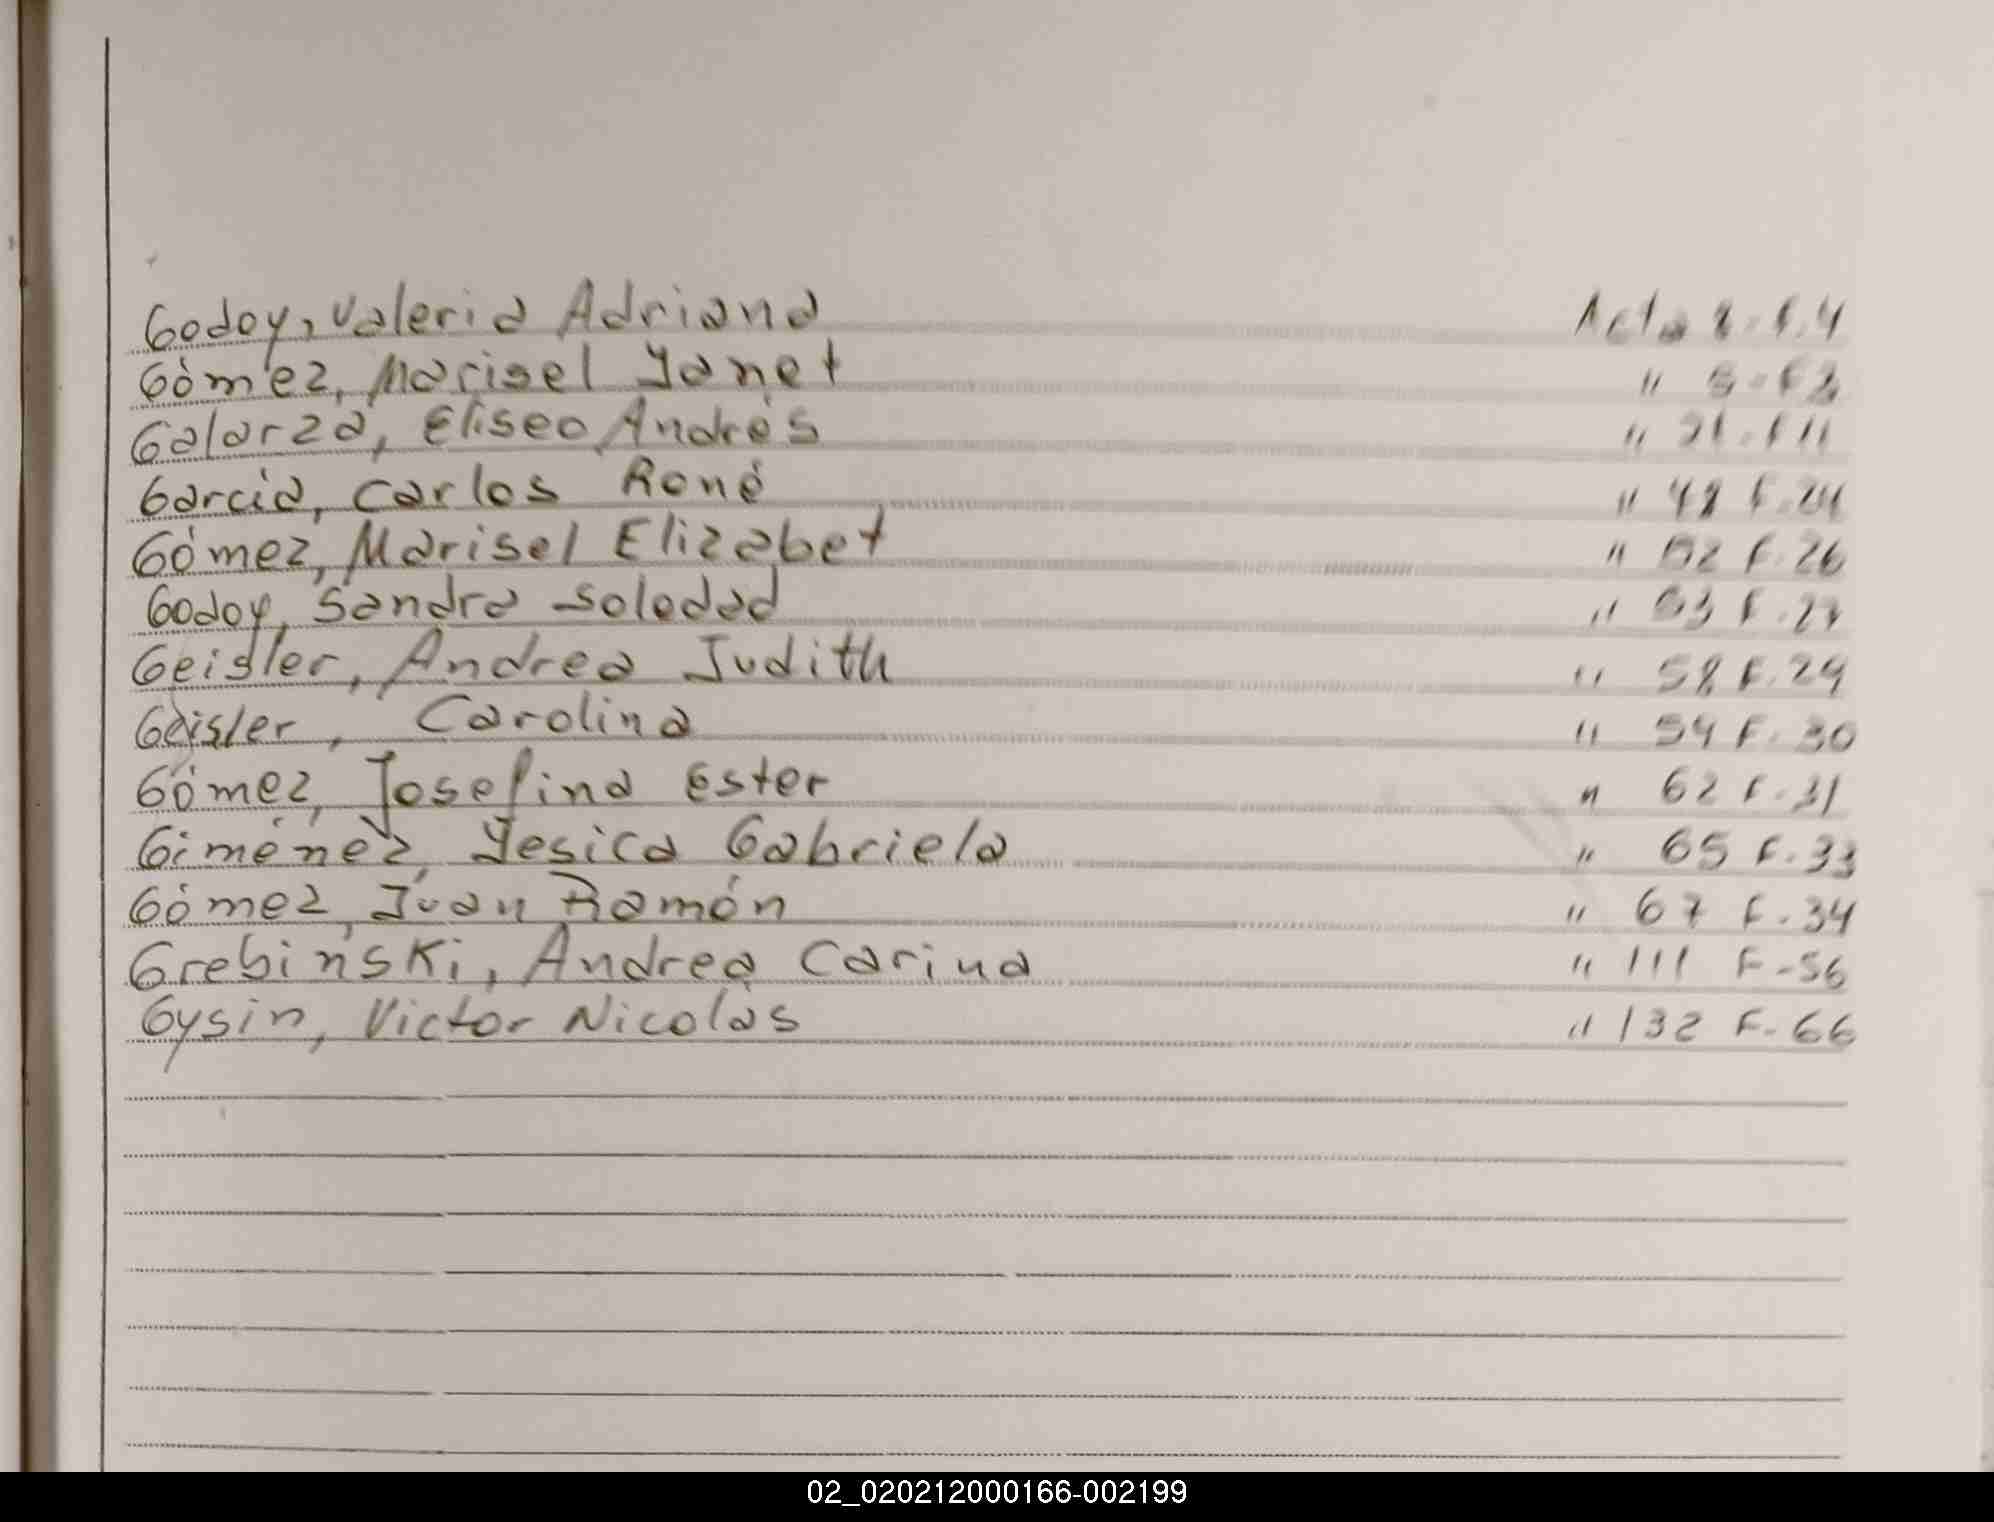 Godoy, Valeria Adriana Acta 8. F. 4
Gómez, Marisel Yanet " 5. F 3
Galarza, Eliseo Andrés " 21. F 11
Garcia, Carlos René " 48 F. 24
Gómez, Marisel Elizabet " 52 F. 26
Godoy, Sandra Soledad " 53 F. 27
Geisler, Andrea Judith " 58 F. 29
Geisler, Carolina " 59 F. 30
Gómez, Josefina Ester " 62 F. 31
Giménez, Yesica Gabriela " 65 F. 33
Gómez, Juan Ramón " 67 F. 34
Grebinski, Andrea Carina " 111 F - 56
Gysin, Victor Nicolás " 132 F. 66
02_020212000166-002199